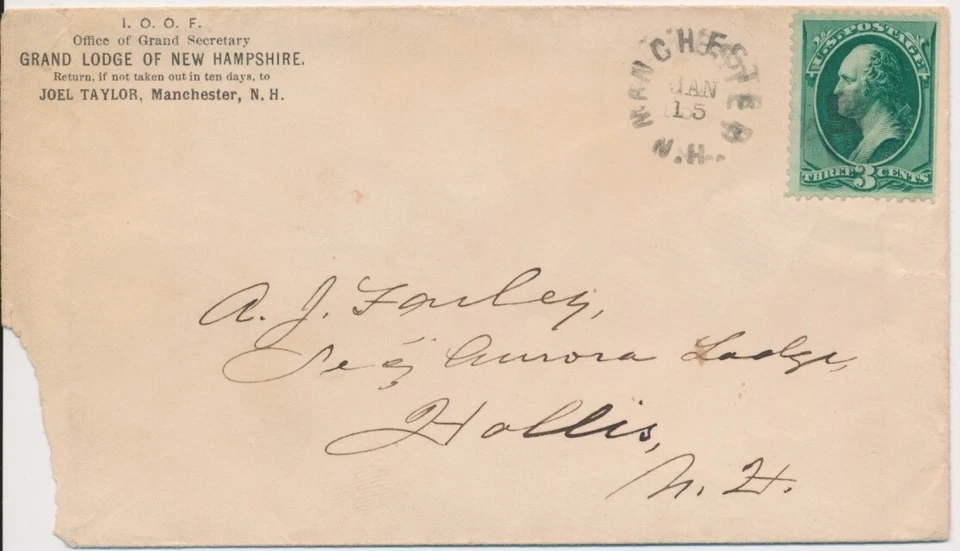 I. O. O. F.
Office of Grand Secretary
GRAND LODGE OF NEW HAMPSHIRE.
Return, if not taken out in ten days, to
JOEL TAYLOR, Manchester, N. H.
MANCHESTER
JAN
15
N.H.
U.S. POSTAGE
THREE 3 CENTS
A. J. Farley,
Sec'y Aurora Lodge,
Hollis,
N. H.